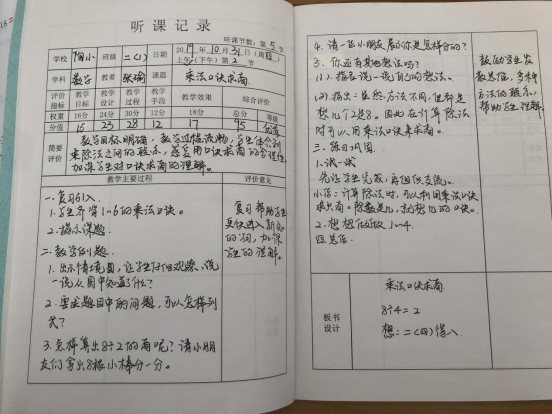 听课记录
听课节数：第 5 节
学校 陶小 班级 二(1) 日期 2019年10月31日(周四)
上午(下午)第 2 节
学科 数学 教者 张瑜 课题 乘法口诀求商
评价指标 教学目标 教学设计 教学过程 教学手段 教学效果 综合评价
权重 16分 24分 30分 12分 18分 总分 等级
分值 16 23 28 12 17 95 优秀
简要评价
教学目标明确，教学过程流畅，学生体会到
乘除法之间的联系，感受用口诀求商的合理性，
加深学生对口诀求商的理解。
教学主要过程 评价意见
一.复习引入
1.学生齐背1~6的乘法口诀.
2.揭示课题.
二.教学例题.
1.出示情境图，让学生仔细观察，说一
说从图中知道了什么？
2.要求题目中的问题，可以怎样列
式？
3.怎样算出8÷2的商呢？请小朋
友们拿出8根小棒分一分。
复习帮助学生
更快进入新知
的学习，加深
学生的理解。
4.请一位小朋友展示你是怎样分的？
5.你还有其他想法吗？
(1).指名说一说自己的想法。
(2).指出：虽然方法不同，但都是
想几个2是8。因此在计算除法
时可以用乘法口诀求商。
三.练习巩固.
1.试一试
先让学生完成，再组织交流。
小结：计算除法时，可以利用乘法口诀
求出商。除数是几，就想几的口诀。
2.想想做做1~4.
四.总结
教给学生发
散思维，多种
方法的联系，
帮助学生理解
板书设计
乘法口诀求商
8÷4=2
想：二(四)得八